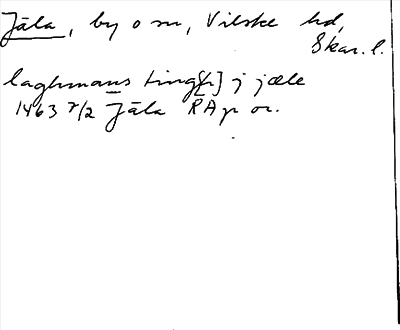 Jäla, by o sn, Vilske hd,
Skar. l.
laghmans ting[h] j jæle
1463 7/2 Jäla RAp or.